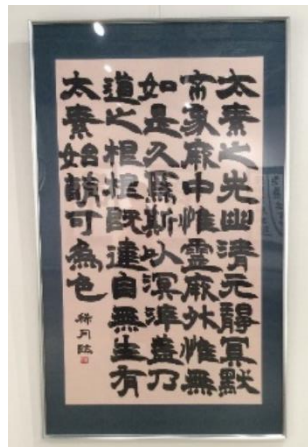 太素之光幽清元靜冥默
象厥中惟靈厥外惟無
如是久焉斯以溟涬蓋乃
道之根既建自無生有
太素始萌可為色